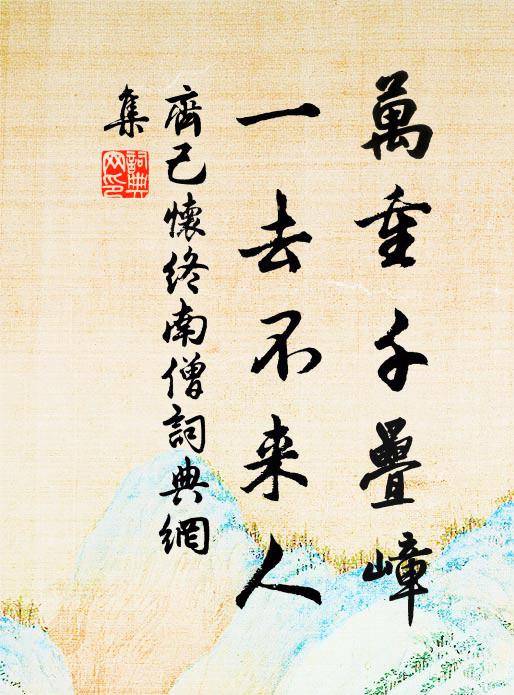 萬重千疊嶂
一去不来人
齊己懷終南僧詞典網
集
詞典
网印